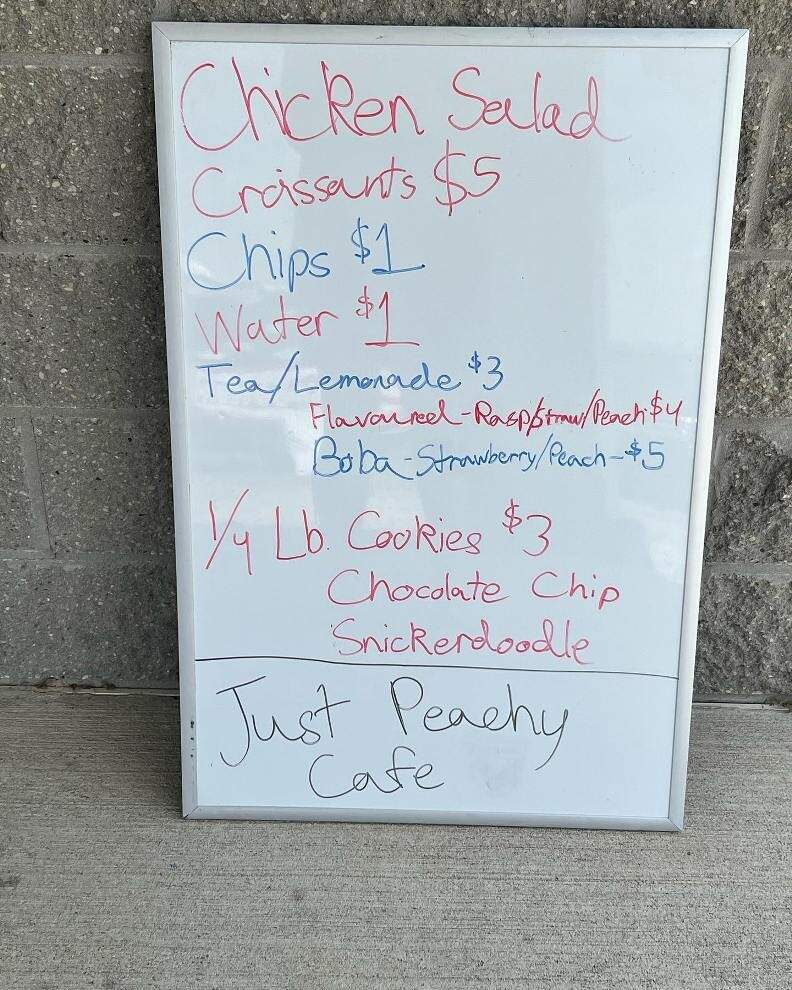 Chicken Salad
Croissants $5
Chips $1
Water $1
Tea/Lemonade $3
Flavoured-Rasp/Straw/Peach $4
Boba-Strawberry/Peach-$5
1/4 Lb. Cookies $3
Chocolate Chip
Snickerdoodle
Just Peachy
Cafe